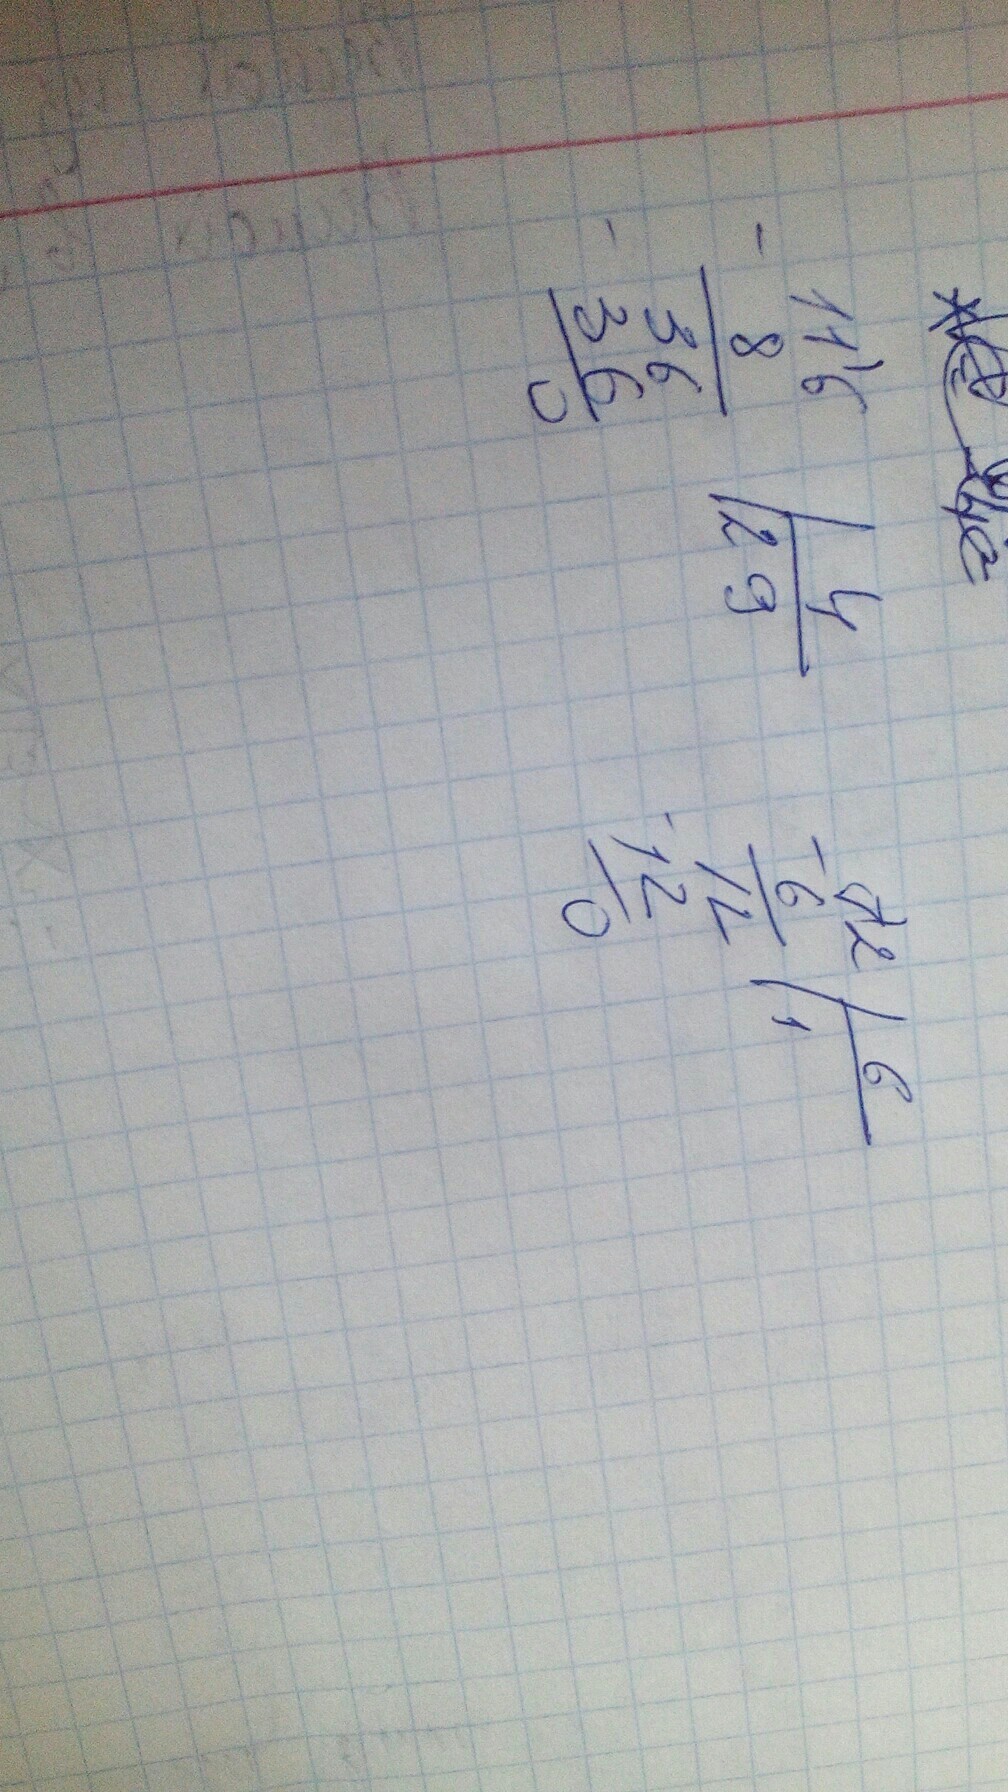 116 4
- 8 29
36
- 36
0
72 6
- 6 1
12
- 12
0